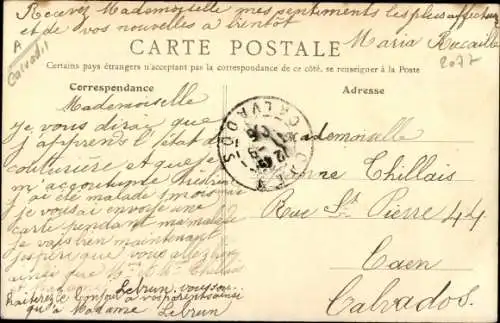 Recevez Mademoiselle mes sentiments les plus affectueux
et de vos nouvelles à bientôt
Maria
CARTE POSTALE
Certains pays étrangers n'acceptant pas la correspondance de ce côté, se renseigner à la Poste
Calvados
2077
Correspondance
Adresse
Mademoiselle
je vous dirai que
j'apprens l'état de
couturière et que je
m'accoutume très bien
j'ai été malade 1 mois
je vous ai envoyé une
carte pendant ma maladie
je vais bien maintenant
j'espère que vous allez bien
ainsi que Mr Mme Thillais
Lebrun
à vos parents ainsi
qu'à Madame Lebrun
CALVADOS
Mademoiselle
Thillais
Rue St Pierre 44
Caen
Calvados